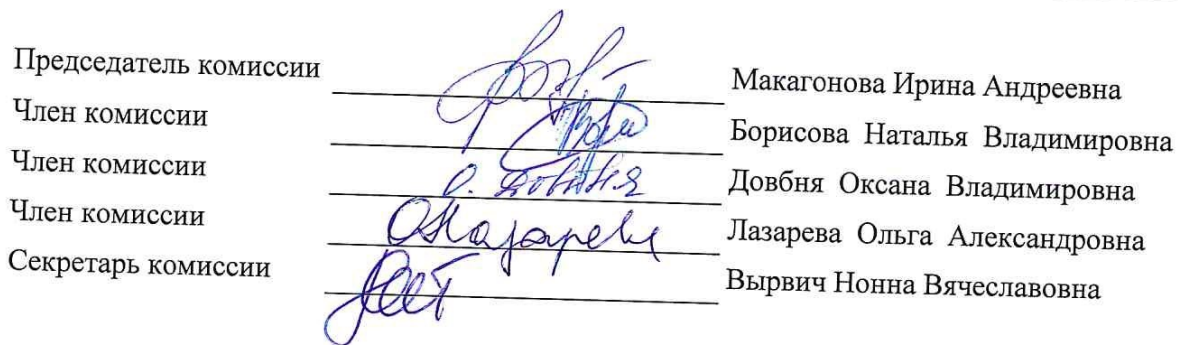 Председатель комиссии Макагонова Ирина Андреевна
Член комиссии Борисова Наталья Владимировна
Член комиссии О. Довбня Довбня Оксана Владимировна
Член комиссии ОЛазарева Лазарева Ольга Александровна
Секретарь комиссии Вырвич Нонна Вячеславовна